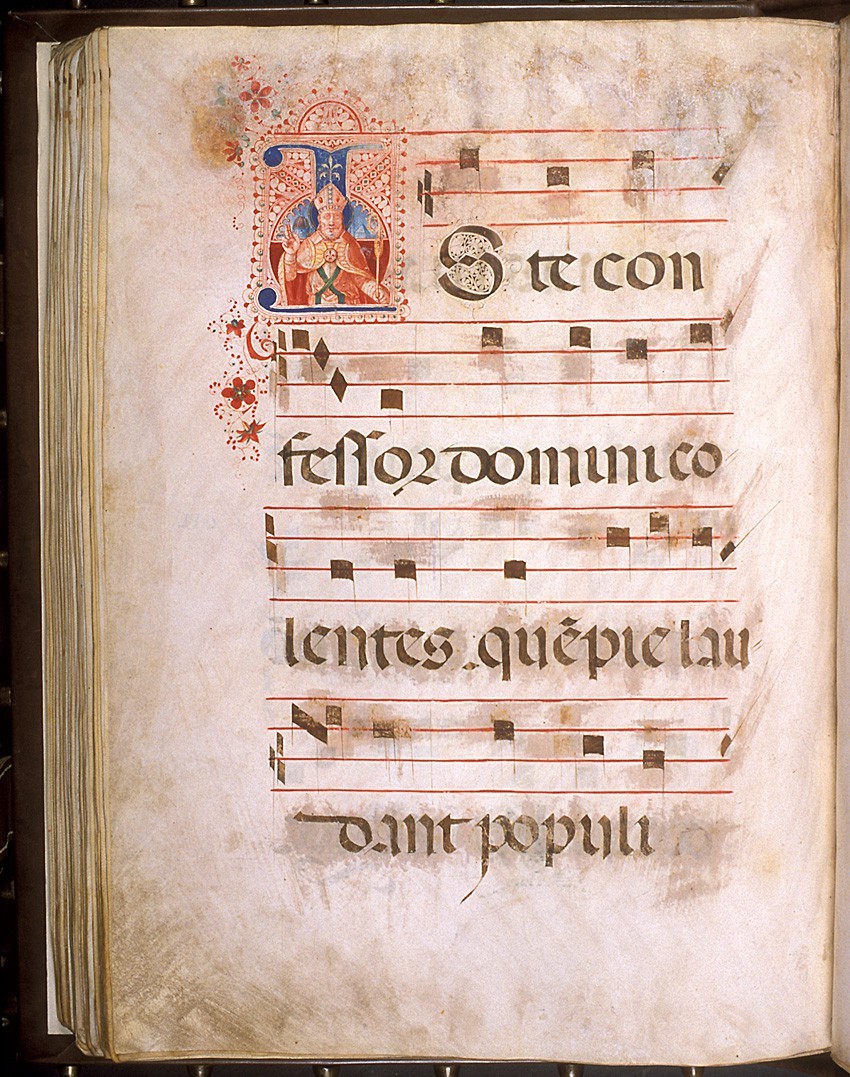 ISte con
feſſor domini co
lentes. quē pie lau
dant populi